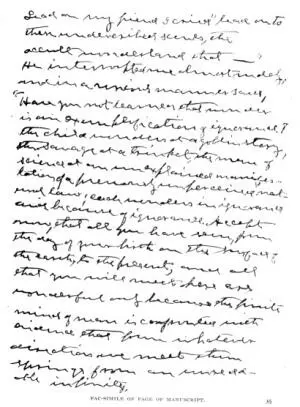 Lead on my friend I cried "lead on to
these undescribed scenes, the
occult wonderland that —"
He interrupted me almost rudely,
and in a serious manner said,
"Have you not learned that wonder
is an exemplification of ignorance?
the child wonders at a goblin story,
the savage at a trinket, the man of
science at an unexplained manifes-
tation of a previously unperceived nat-
ural law; each wonders in ignorance
and because of ignorance. Accept
now, that all you have seen, from
the day of your birth on the surface of
the earth, to the present, and all
that you will meet here are
wonderful only because the finite
mind of man is confronted with
evidence that from whatever
direction we meet them
springs from an unsearch-
able infinity,
FAC-SIMILE OF PAGE OF MANUSCRIPT.